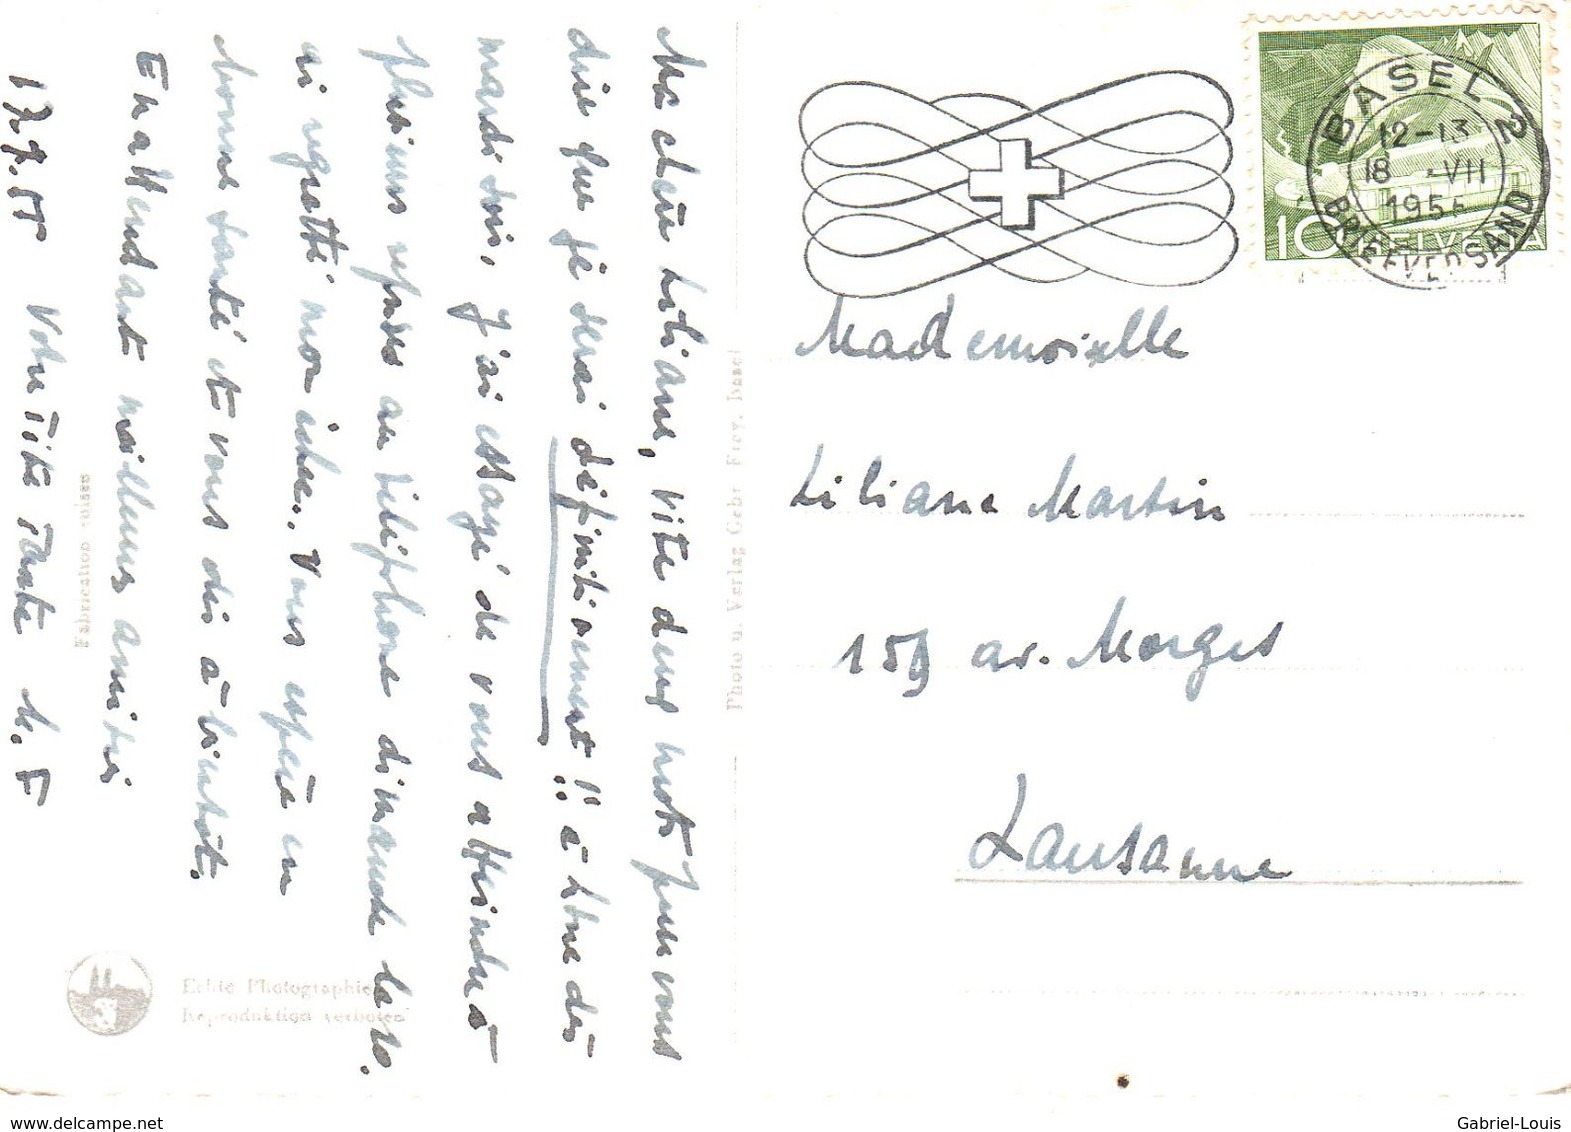 Ma chère Liliane, vite deux mots pour vous
dire que je serai définitivement !! à Bône dès
mardi soir. J'ai essayé de vous atteindre à
plusieurs reprises au téléphone dimanche
ai regretté mon échec. Vous espère en
bonne santé et vous dis à bientôt.
En attendant meilleures amitiés
17.7.55 Votre Tite Tante M. F
Fabrication suisse
Echte Photographie
Reproduktion verboten
Photo u. Verlag Gebr. Frey, Basel
BASEL 2
12-13
18.-VII
195
BRIEFVERSAND
10 HELVETIA
Mademoiselle
Liliane Martin
159 av. Morges
Lausanne
www.delcampe.net
Gabriel-Louis